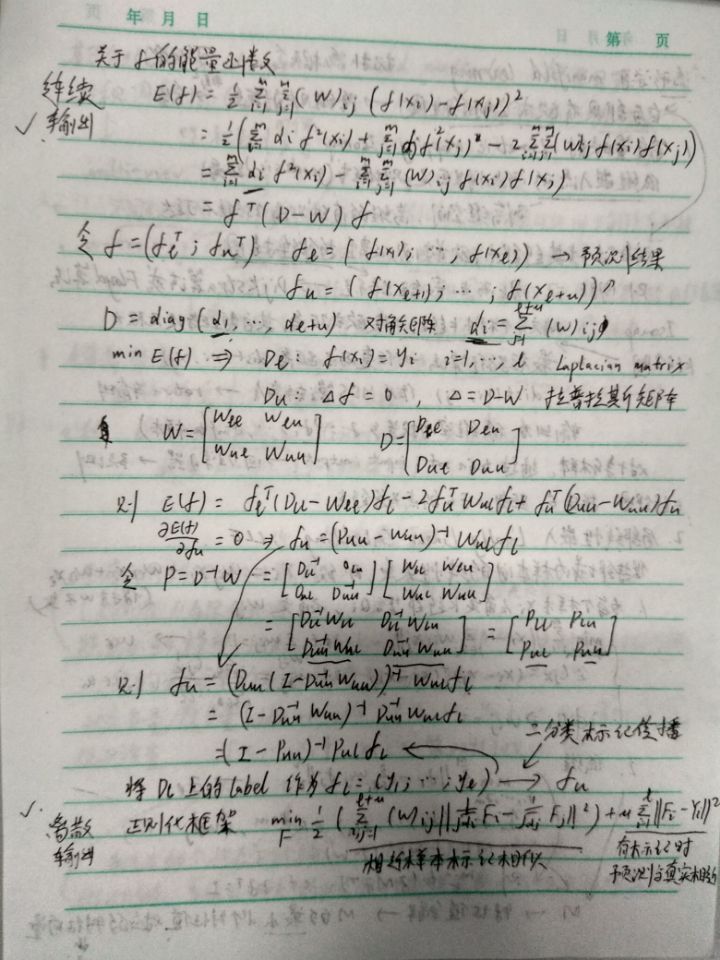 年 月 日
第 页
关于f的能量函数
连续 E(f) = ½ Σ_{i=1}^m Σ_{j=1}^m (W)ij (f(xi) - f(xj))²
✓ 输出 = ½ (Σ_{i=1}^m di f²(xi) + Σ_{j=1}^m dj f²(xj) - 2 Σ_{i=1}^m Σ_{j=1}^m (W)ij f(xi) f(xj))
= Σ_{i=1}^m di f²(xi) - Σ_{i=1}^m Σ_{j=1}^m (W)ij f(xi) f(xj)
= f^T (D-W) f
令 f = (f_l^T ; f_u^T) f_l = (f(x1); ⋯; f(x_l)) → 预测结果
f_u = (f(x_{l+1}); ⋯; f(x_{l+u})) ↗
D = diag(d1, ⋯, d_{l+u}) 对角矩阵 di = Σ_{j=1}^{l+u} (W)ij
min E(f) ⇒ D_l : f(xi) = yi i=1, ⋯, l Laplacian matrix
D_u : Δf = 0 , Δ = D-W 拉普拉斯矩阵
W = [W_ll W_lu
W_ul W_uu] D = [D_ll D_lu
D_ul D_uu]
则 E(f) = f_l^T (D_ll - W_ll) f_l - 2 f_u^T W_ul f_l + f_u^T (D_uu - W_uu) f_u
∂E(f)/∂f_u = 0 ⇒ f_u = (D_uu - W_uu)^-1 W_ul f_l
令 P = D^-1 W = [D_ll^-1 0_lu
0_ul D_uu^-1] [W_ll W_lu
W_ul W_uu]
= [D_ll^-1 W_ll D_ll^-1 W_lu
D_uu^-1 W_ul D_uu^-1 W_uu] = [P_ll P_lu
P_ul P_uu]
则 f_u = (D_uu (I - D_uu^-1 W_uu))^-1 W_ul f_l
= (I - D_uu^-1 W_uu)^-1 D_uu^-1 W_ul f_l
= (I - P_uu)^-1 P_ul f_l
二分类标记传播
将 D_l 上的 label 作为 f_l = (y1; ⋯; y_l) → f_u
✓ 离散 正则化框架 min_F ½ (Σ_{i,j=1}^{l+u} (W)ij || 1/√di Fi - 1/√dj Fj ||²) + μ Σ_{i=1}^l ||Fi - Yi||²
输出 相近样本标记相似 有标记时
预测与真实相近